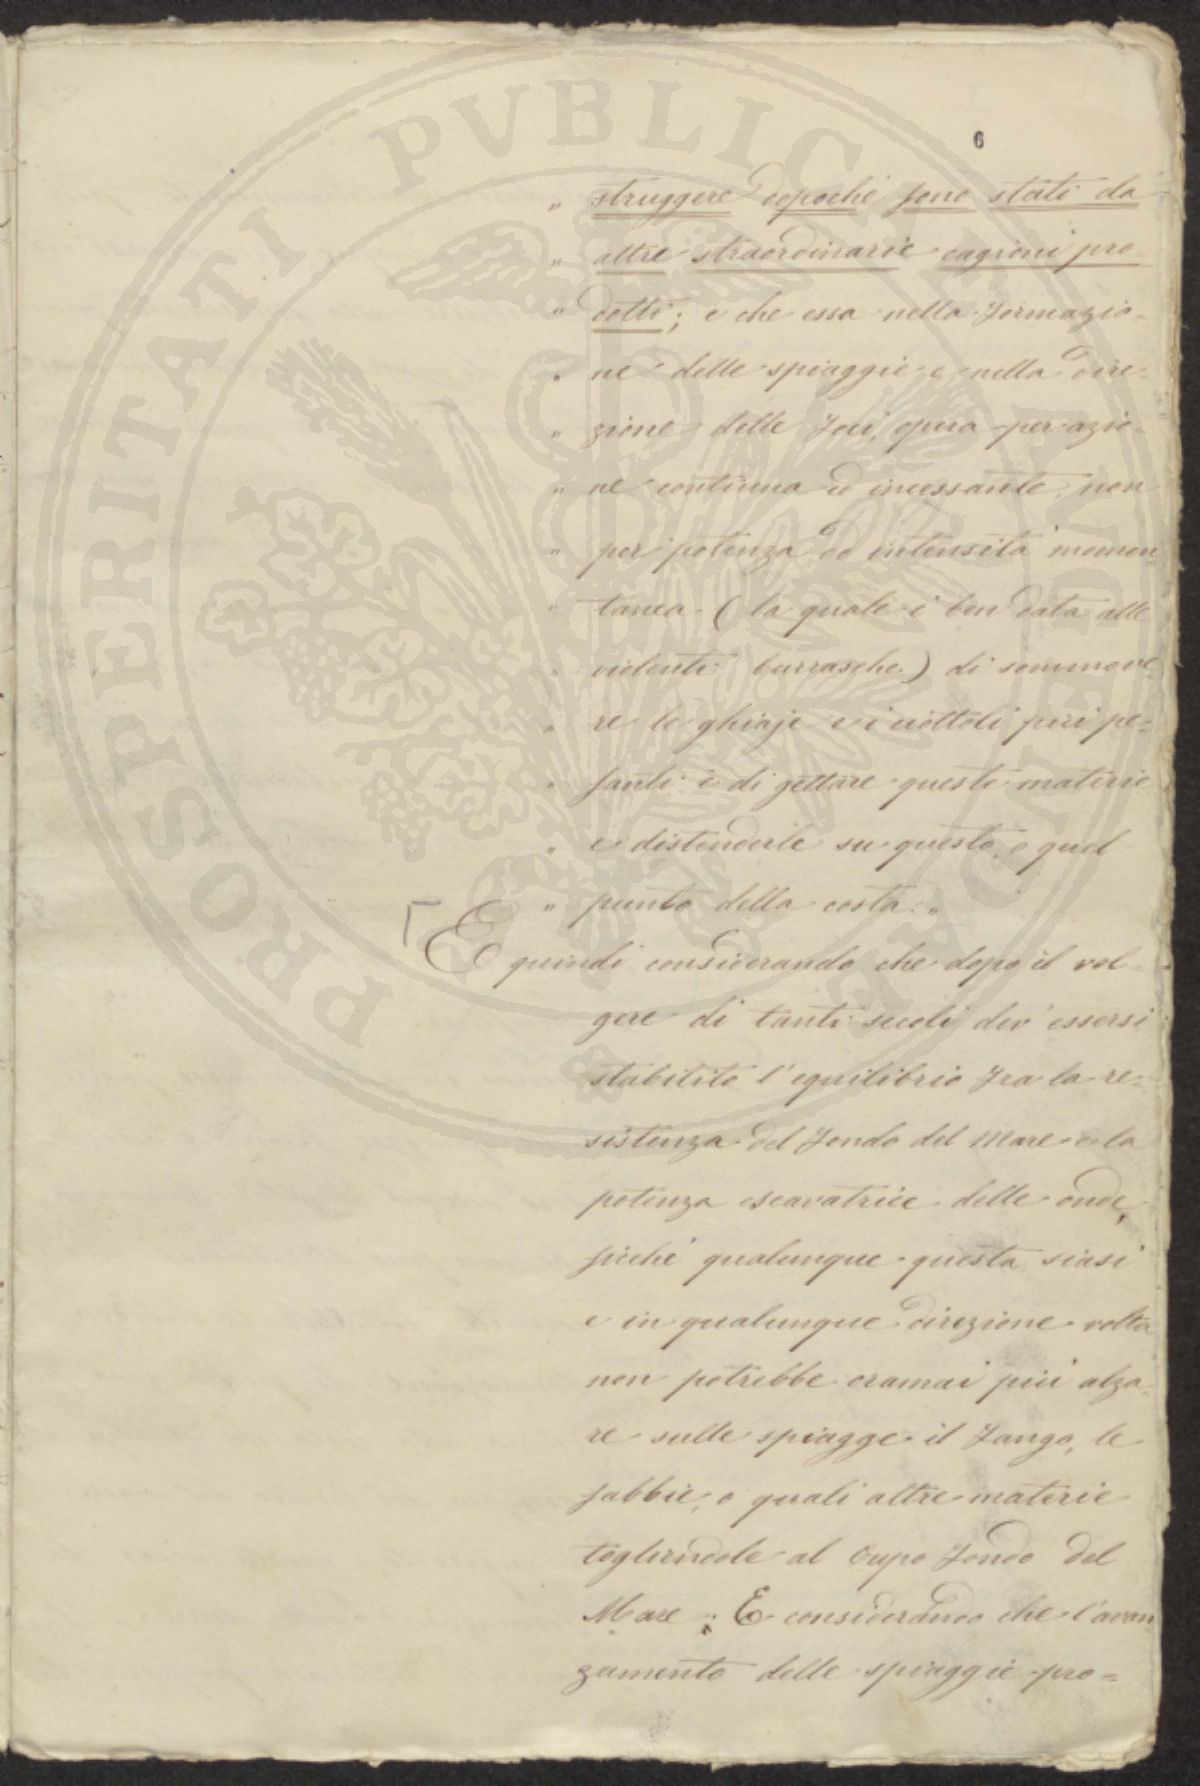 6
" struggere dopochè sono stati da
" altre straordinarie cagioni pro-
" dotti; e che essa nella formazio-
" ne delle spiaggie e nella dire-
" zione delle foci, opera per azio-
" ne continua ed incessante, non
" per potenza od intensità momen
" tanea (la quale è ben data alle
" violenti burrasche) di sommove-
" re le ghiaje e i ciottoli più pe-
" santi e di gettare queste materie
" e distenderle su questo, o quel
" punto della costa. "
E quindi considerando che dopo il vol-
gere di tanti secoli dev'essersi
stabilito l'equilibrio fra la re-
sistenza del fondo del Mare e la
potenza escavatrice delle onde,
sicchè qualunque questa siasi
e in qualunque direzione volta
non potrebbe oramai più alza-
re sulle spiagge il fango, le
sabbie, o quali altre materie
togliendole al cupo fondo del
Mare; E considerando che l'avan
zamento delle spiaggie pro=
PROSPERITATI PVBLICAE